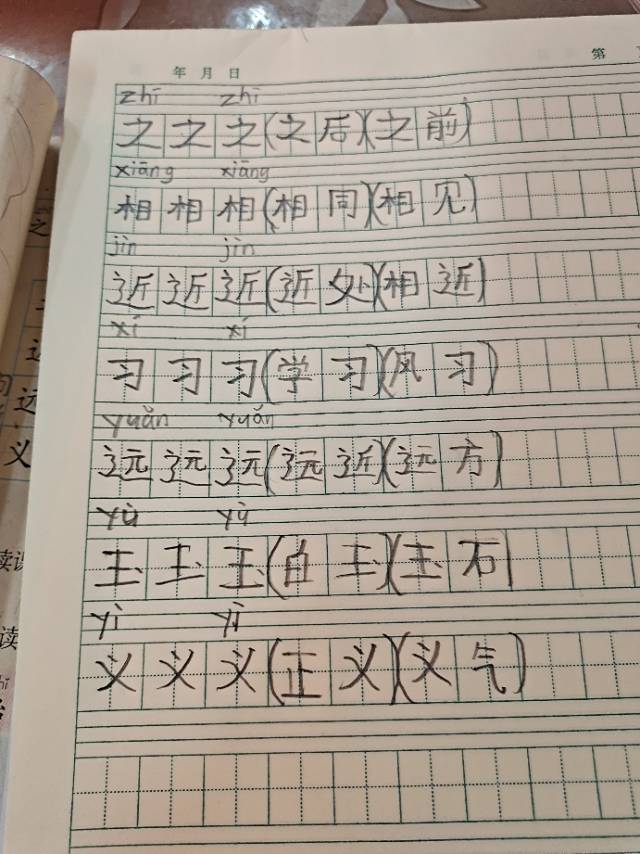 年 月 日
第
zhī zhī
之 之 之(之 后)(之 前)
xiāng xiāng
相 相 相(相 同)(相 见)
jìn jìn
近 近 近(近 处)(相 近)
xí xí
习 习 习(学 习)(风 习)
yuǎn yuǎn
远 远 远(远 近)(远 方)
yù yù
玉 玉 玉(白 玉)(玉 石)
yì yì
义 义 义(正 义)(义 气)
远
义
读课
读